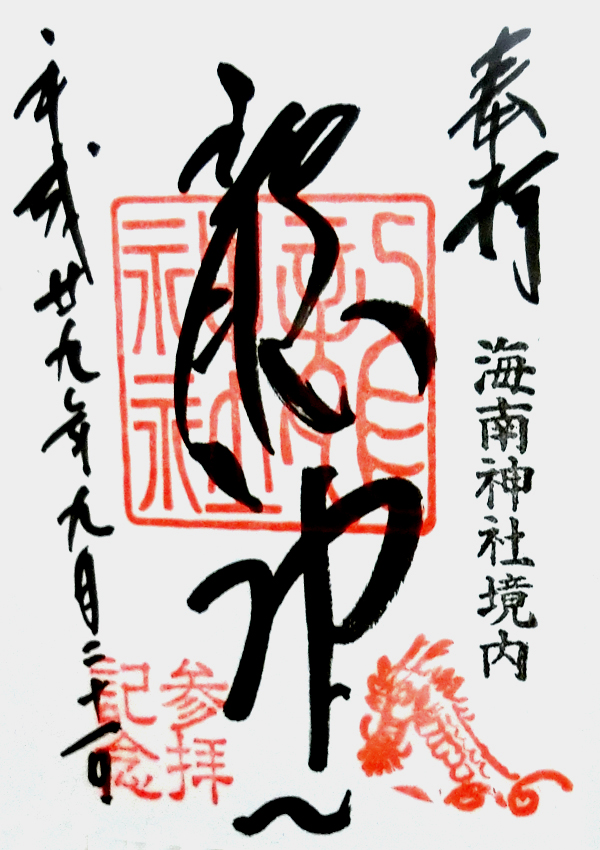 奉拝
海南神社境内
龍神
龍神社
参拝
記念
平成廿九年九月二十一日